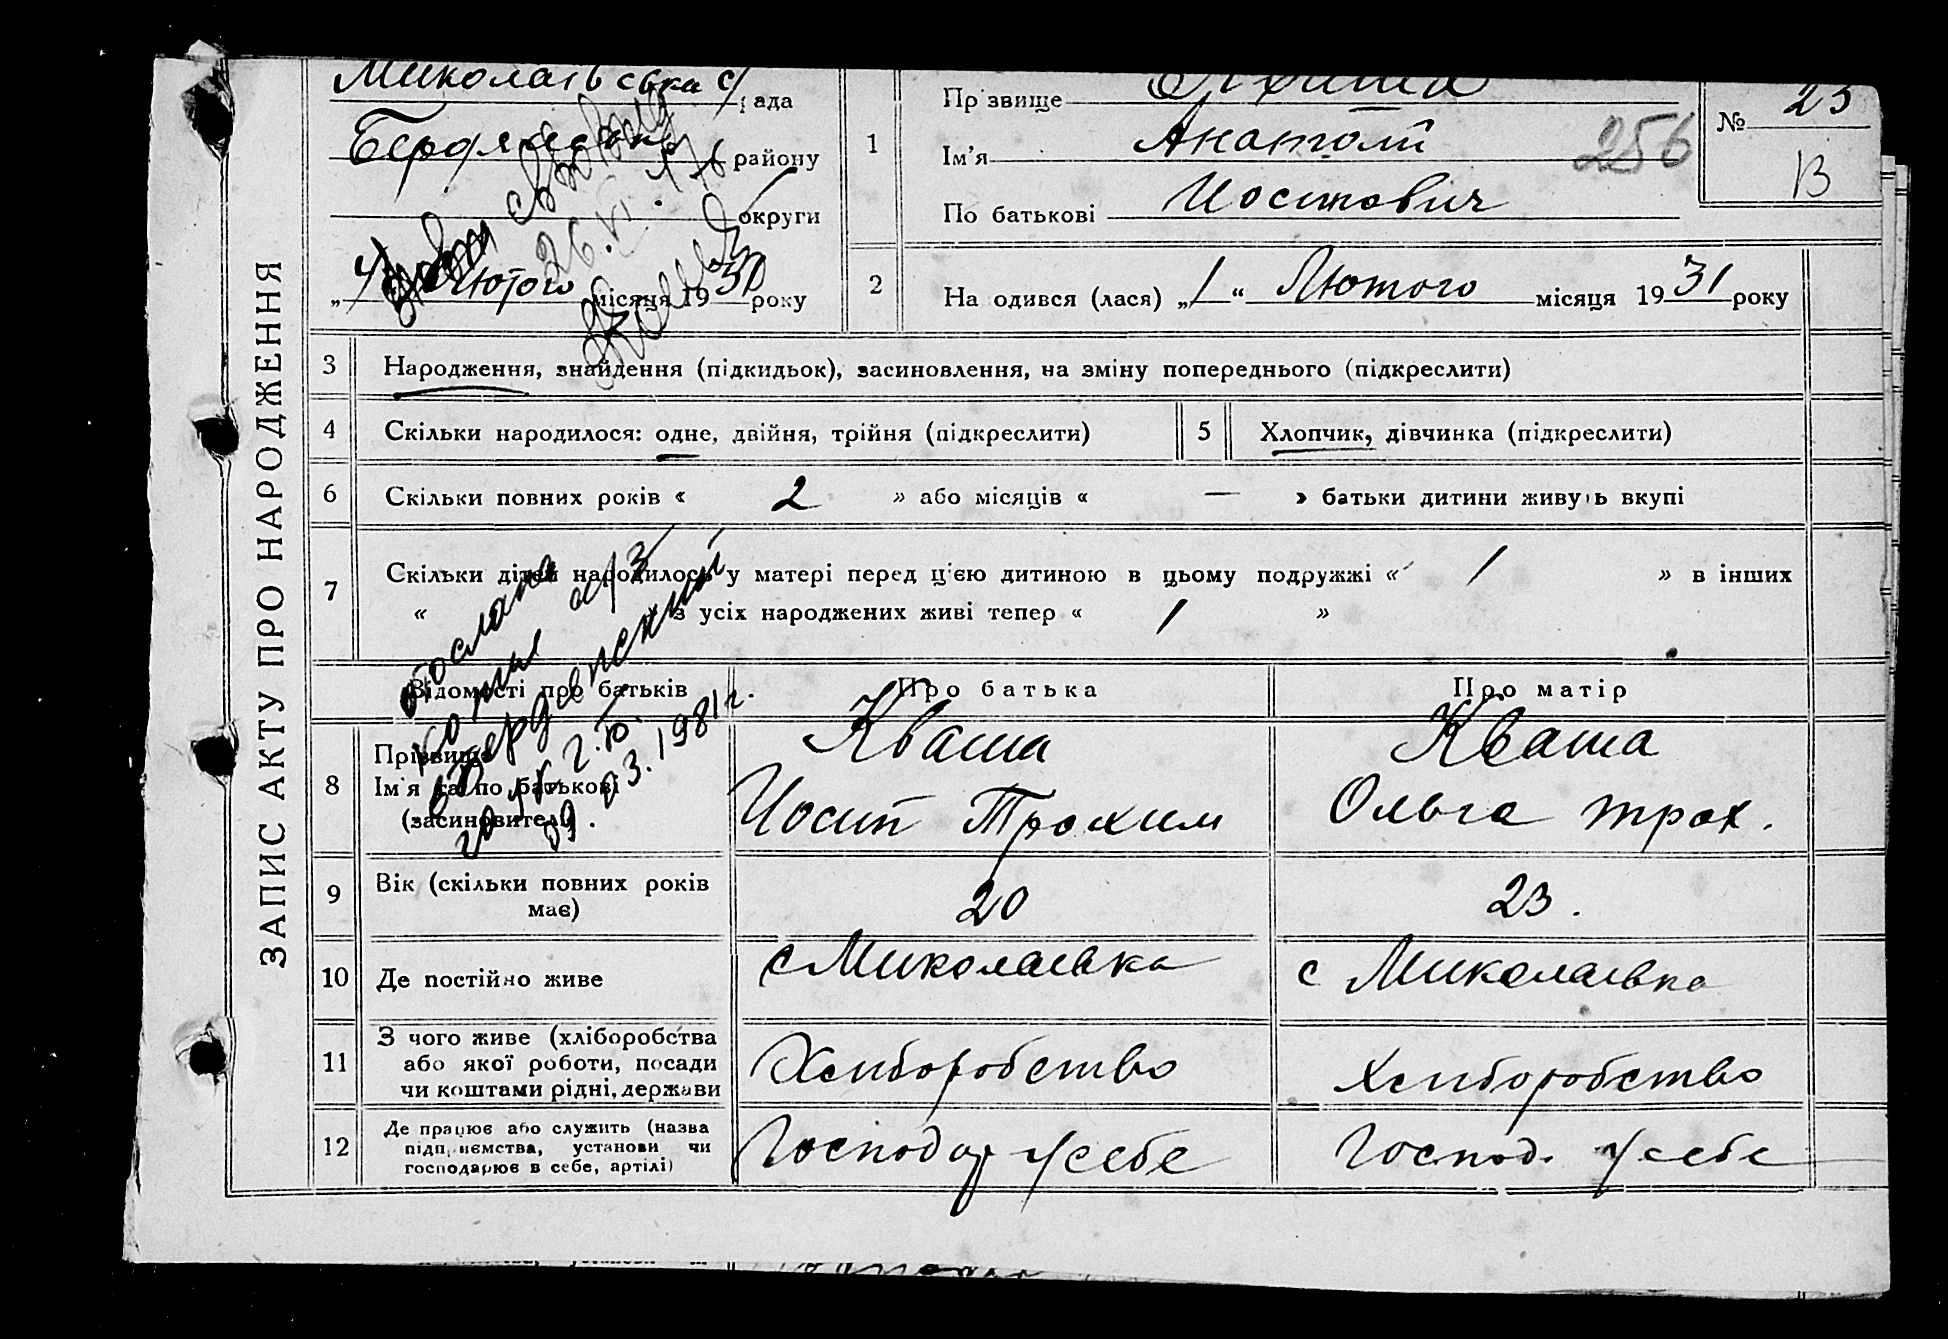 Миколаївська с/рада
Бердянського району
округи
„4" Лютого місяця 1930 року
1
Прізвище
Ім'я Анатолій
256
По батькові Йосипович
№ 23
В
2
Народився (лася) „1" Лютого місяця 1931 року
ЗАПИС АКТУ ПРО НАРОДЖЕННЯ
26.VI.
3 Народження, знайдення (підкидьок), засиновлення, на зміну попереднього (підкреслити)
4 Скільки народилося: одне, двійня, трійня (підкреслити) 5 Хлопчик, дівчинка (підкреслити)
6 Скільки повних років « 2 » або місяців « — » батьки дитини живуть вкупі
7 Скільки дітей народилось у матері перед цією дитиною в цьому подружжі « 1 » в інших
« з усіх народжених живі тепер « 1 »
выслана
копия
в Бердянский
09.03.1981 г.
Відомості про батьків Про батька Про матір
8 Прізвище Кваша Кваша
Ім'я та по батькові Йосип Трохим Ольга трох.
(засиновителі)
9 Вік (скільки повних років має) 20 23.
10 Де постійно живе с Миколаївка с Миколаївка
11 З чого живе (хліборобства Хліборобство Хліборобство
або якої роботи, посади
чи коштами рідні, держави
12 Де працює або служить (назва
підприємства, установи чи Господар у себе Господ. у себе
господарює в себе, артілі)